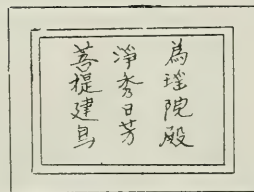 為瑶院殿
淨秀日芳
菩提建